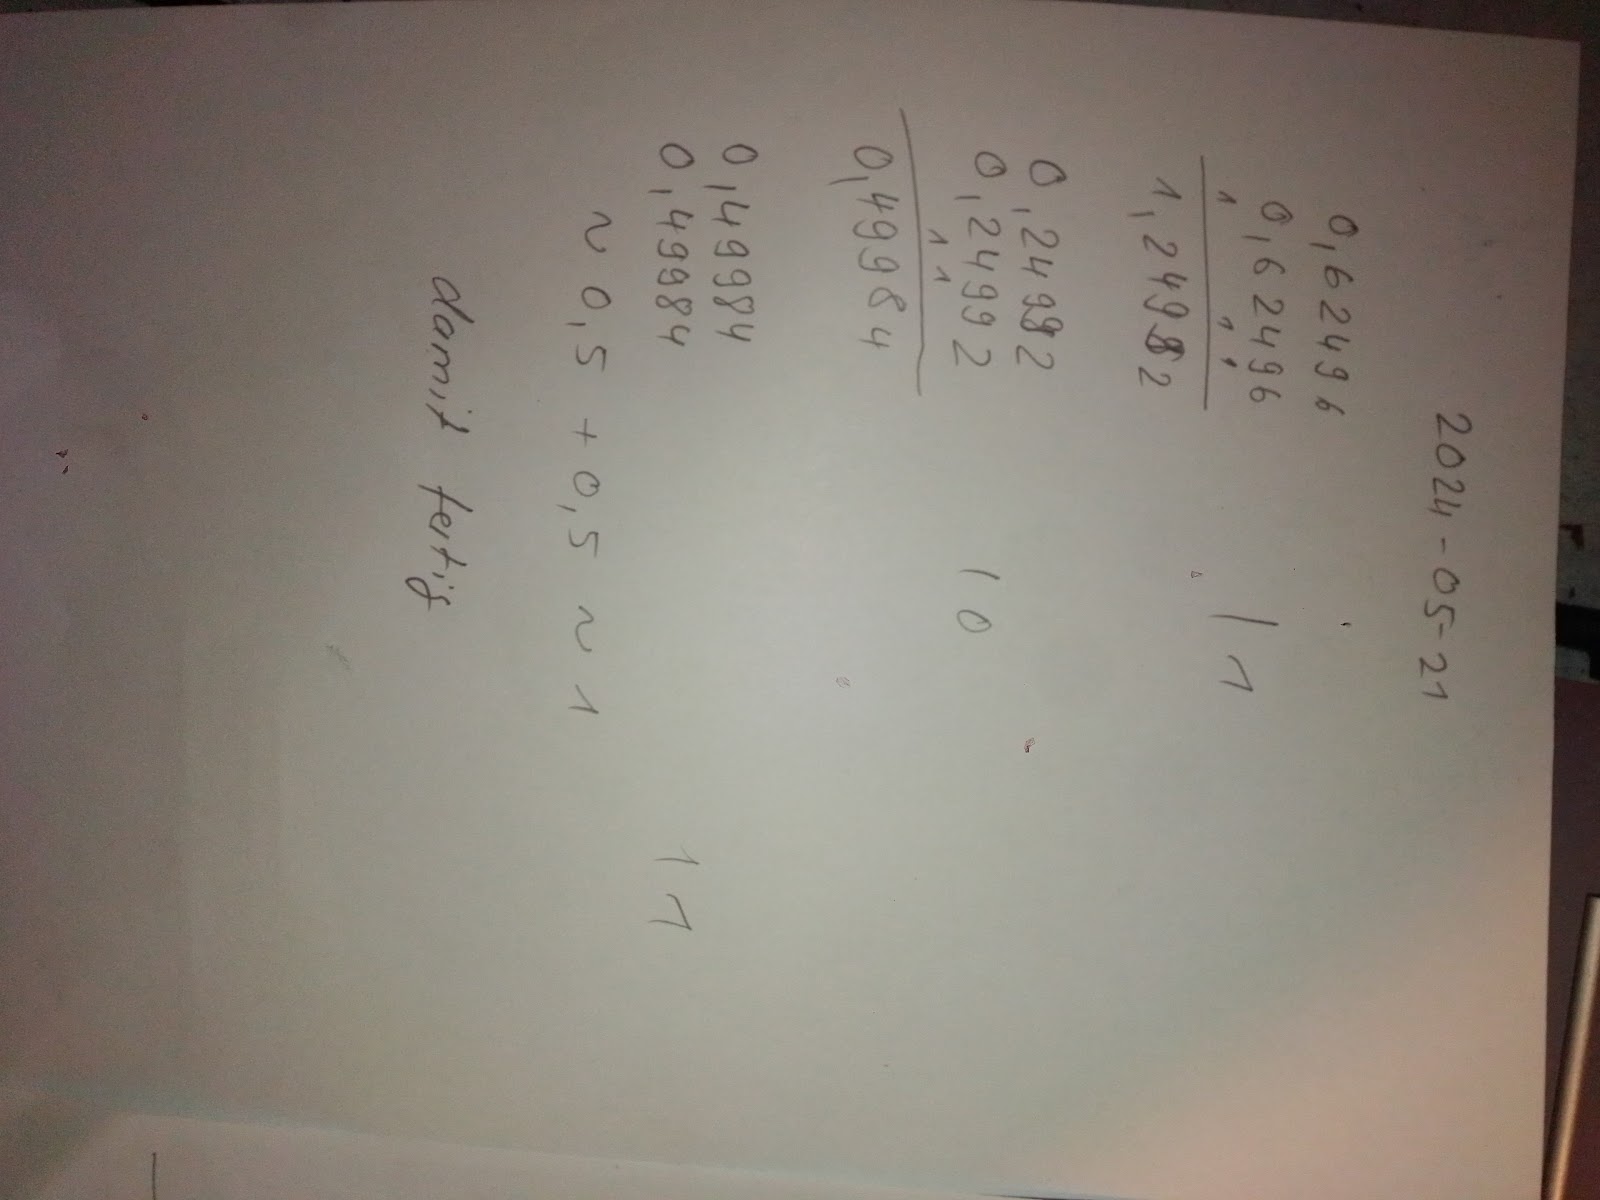 2024-05-21
0,62496
0,62496 | 1
1 1 1
1,24992
0,24992
0,24992 | 0
1 1
0,49984
0,49984
0,49984 1 1
~ 0,5 + 0,5 ~ 1
damit fertig